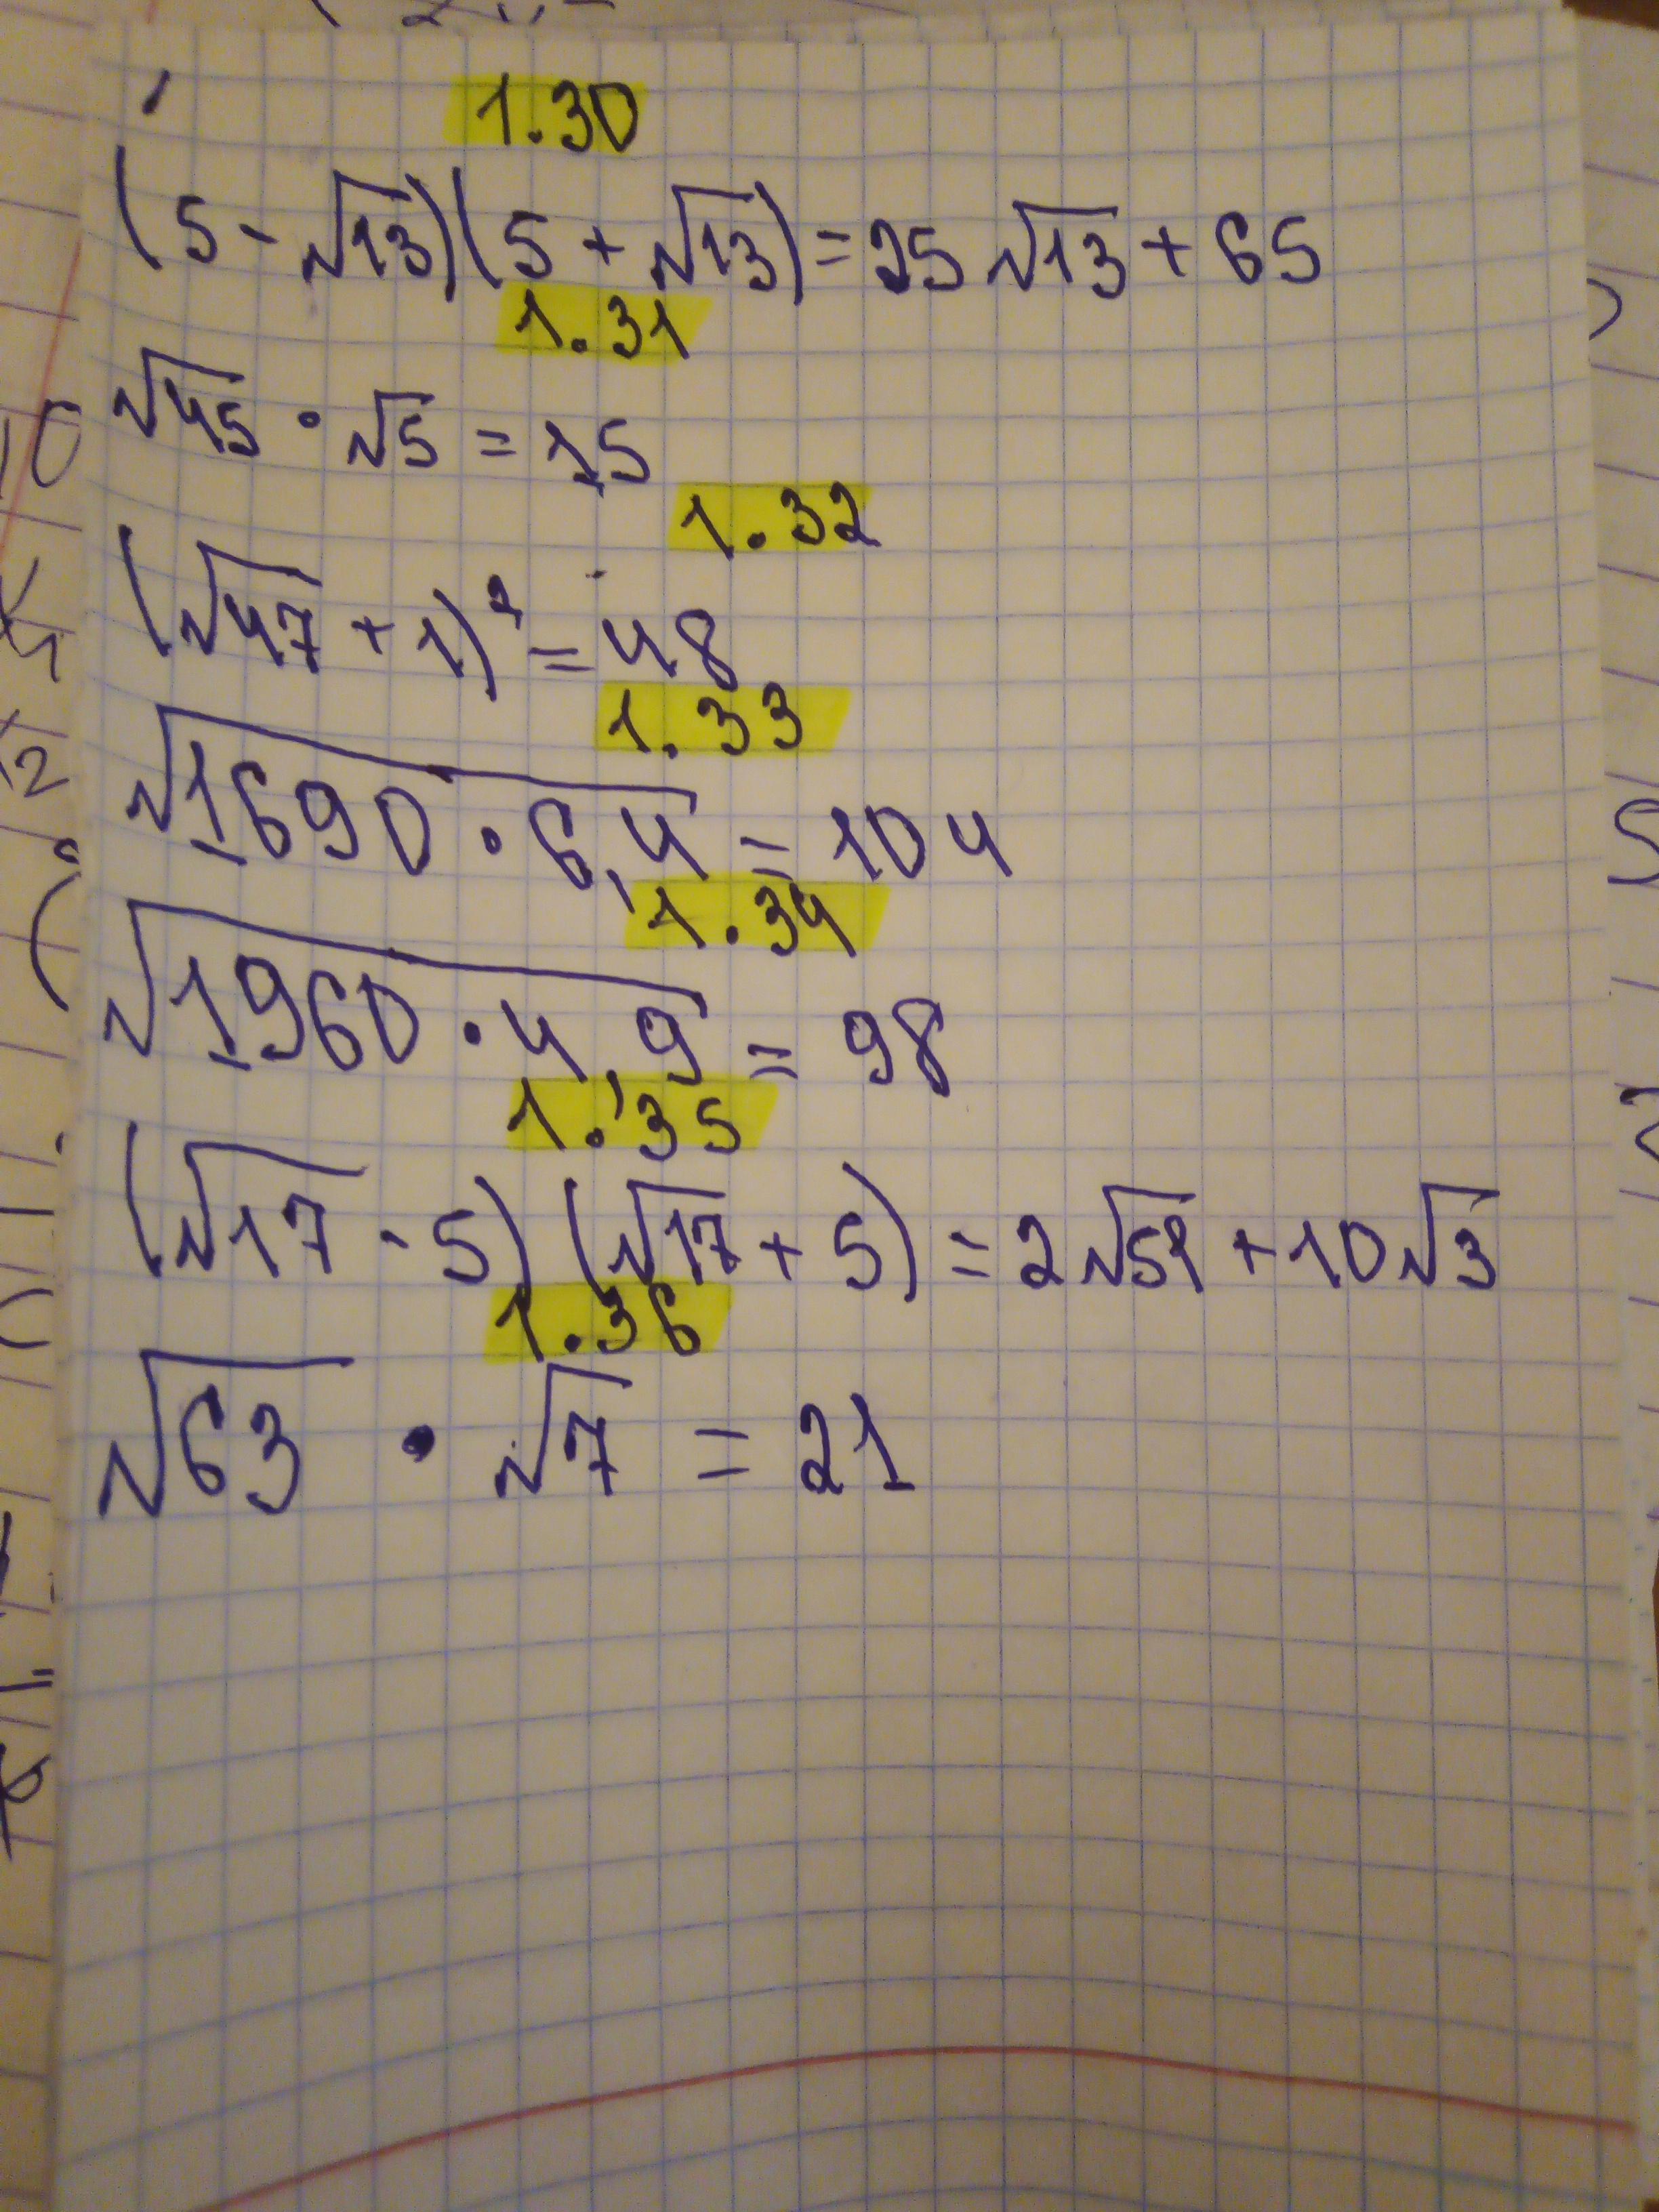 1.30
(5-√13)(5+√13)=25√13+65
1.31
√45·√5=15
1.32
(√47+1)²=48
1.33
√1690·6,4=104
1.34
√1960·4,9=98
1.35
(√17-5)(√17+5)=2√51+10√3
1.36
√63·√7=21